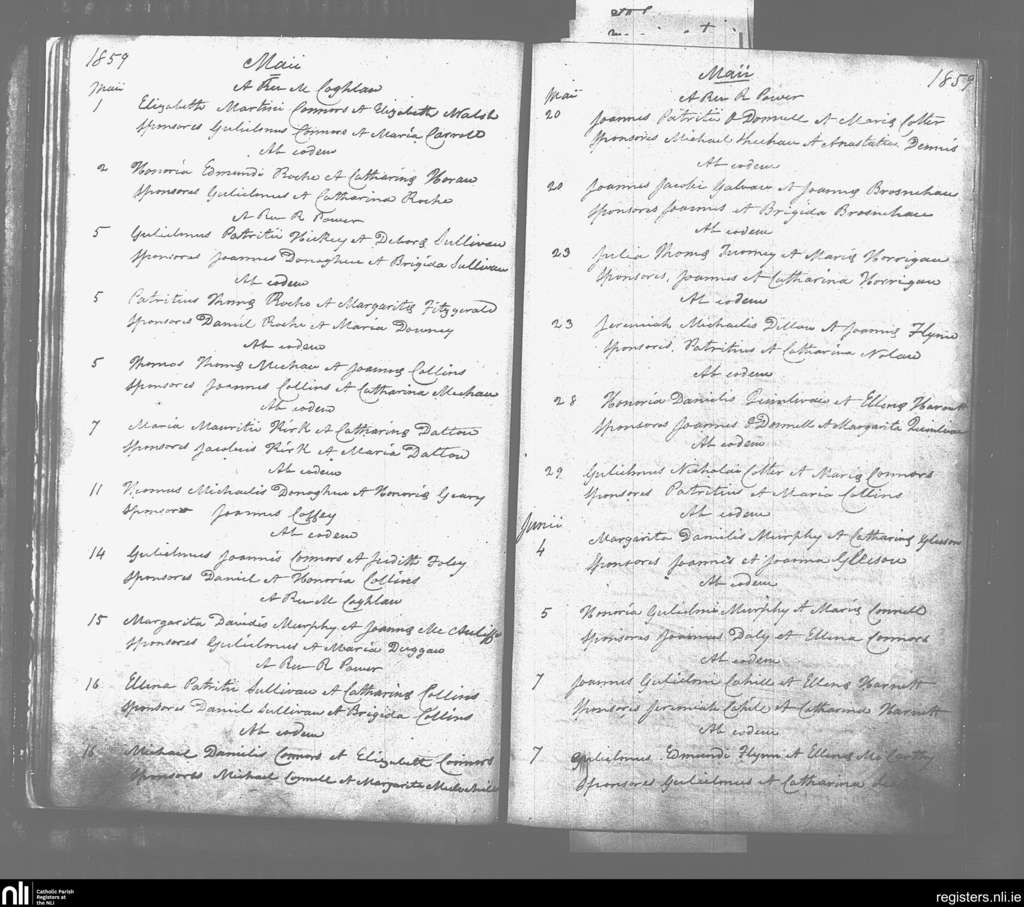 1859
Maii
Maii
A Rev M Coghlan
1 Elizabeth Martini Connors et Elizabeth Walsh
Sponsores Gulielmus Connors et Maria Carroll
Ab eodem
2 Honoria Edmundi Roche et Catharinę Horan
Sponsores Gulielmus et Catharina Roche
A Rev R Power
5 Gulielmus Patritii Hickey et Deborę Sullivan
Sponsores Joannes Donoghue et Brigida Sullivan
Ab eodem
5 Patritius Thomę Roche et Margaritę Fitzgerald
Sponsores Daniel Roche et Maria Downey
Ab eodem
5 Thomas Thomę Meehan et Joannę Collins
Sponsores Joannes Collins et Catharina Meehan
Ab eodem
7 Maria Mauritii Kirk et Catharinę Dalton
Sponsores Jacobus Kirk et Maria Dalton
Ab eodem
11 Thomas Michaelis Donoghue et Honorię Geary
Sponsor Joannes Coffey
Ab eodem
14 Gulielmus Joannis Connors et Judith Foley
Sponsores Daniel et Honoria Collins
A Rev M Coghlan
15 Margarita Davidis Murphy et Joannę Mc Auliffe
Sponsores Gulielmus et Maria Duggan
A Rev R Power
16 Ellena Patritii Sullivan et Catharinę Collins
Sponsores Daniel Sullivan et Brigida Collins
Ab eodem
16 Michael Danielis Connors et Elizabeth Connors
Sponsores Michael Connell et Margarita
Maii
1859
Maii
A Rev R Power
20 Joannes Patritii O Donnell et Marię Cotter
Sponsores Michael Sheehan et Anastatia Dennis
Ab eodem
20 Joannes Jacobi Galvan et Joannę Brosnehan
Sponsores Joannes et Brigida Brosnehan
Ab eodem
23 Julia Thomę Twomey et Marię Horrigan
Sponsores, Joannes et Catharina Horrigan
Ab eodem
23 Jeremiah Michaelis Dillon et Joannę Flynn
Sponsores, Patritius et Catharina Nolan
Ab eodem
28 Honoria Danielis Quinlivan et Ellenę Harnett
Sponsores Joannes O Donnell et Margarita Quinlivan
Ab eodem
29 Gulielmus Nicholai Cotter et Marię Connors
Sponsores Patritius et Maria Collins
Ab eodem
Junii
4 Margarita Danielis Murphy et Catharinę Gleeson
Sponsores Joannes et Joanna Gleeson
Ab eodem
5 Honoria Gulielmi Murphy et Marię Connell
Sponsores Joannes Daly et Ellena Connors
Ab eodem
7 Joannes Gulielmi Cahill et Ellenę Harnett
Sponsores Jeremiah Cahill et Catharina Harnett
Ab eodem
7 Gulielmus Edmundi Flynn et Ellenę Mc Carthy
Sponsores Gulielmus et Catharina
nli
Catholic Parish
Registers at
the NLI
registers.nli.ie